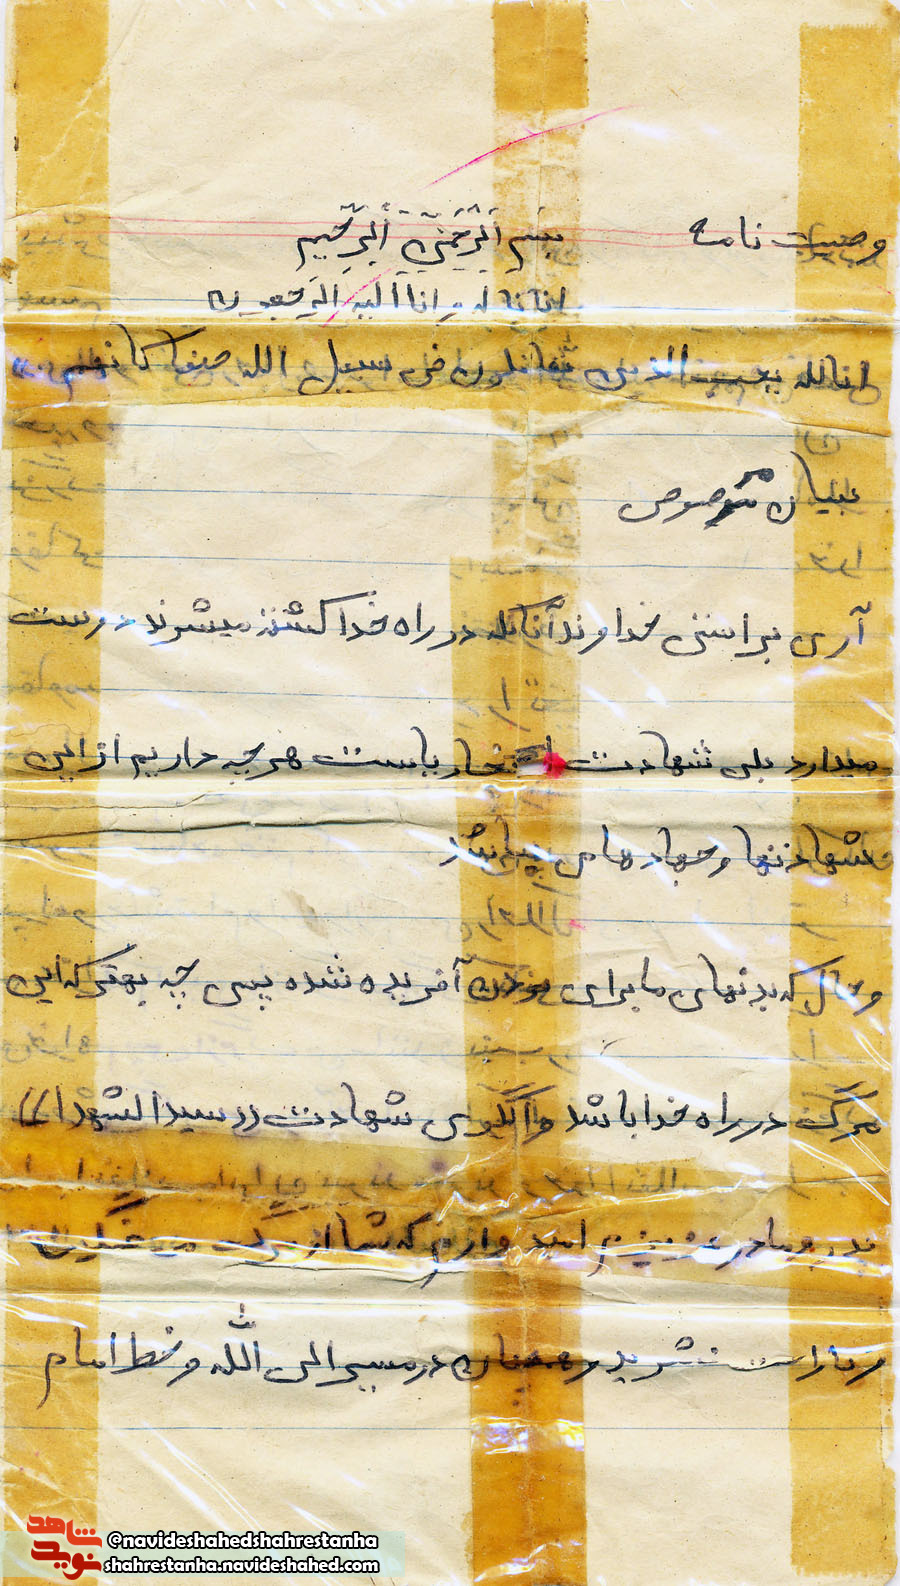 وصیت نامه بسم الرحمن الرحیم
انا لله و انا الیه الرجعون
ان الله یحب الذین یقاتلون فی سبیل الله صفا کانهم
بنیان مرصوص
آری براستی خداوند آنانکه در راه خدا کشته میشوند دوست
میدارد بلی شهادت افتخار ماست هر چه داریم از این
شهادتها و جهادها می باشد
و حال که بدنهای ما برای آفریده شده پس چه بهتر که این
مرگ در راه خدا باشد و الگوی شهادت ((سیدالشهدا))
پدر و مادر عزیزم امید وارم که شما از مرگ من غمگین
و ناراحت نشوید و همچنان در مسیر الی الله و خط امام
شاهد
نوید
@navideshahedshahrestanha
shahrestanha.navideshahed.com